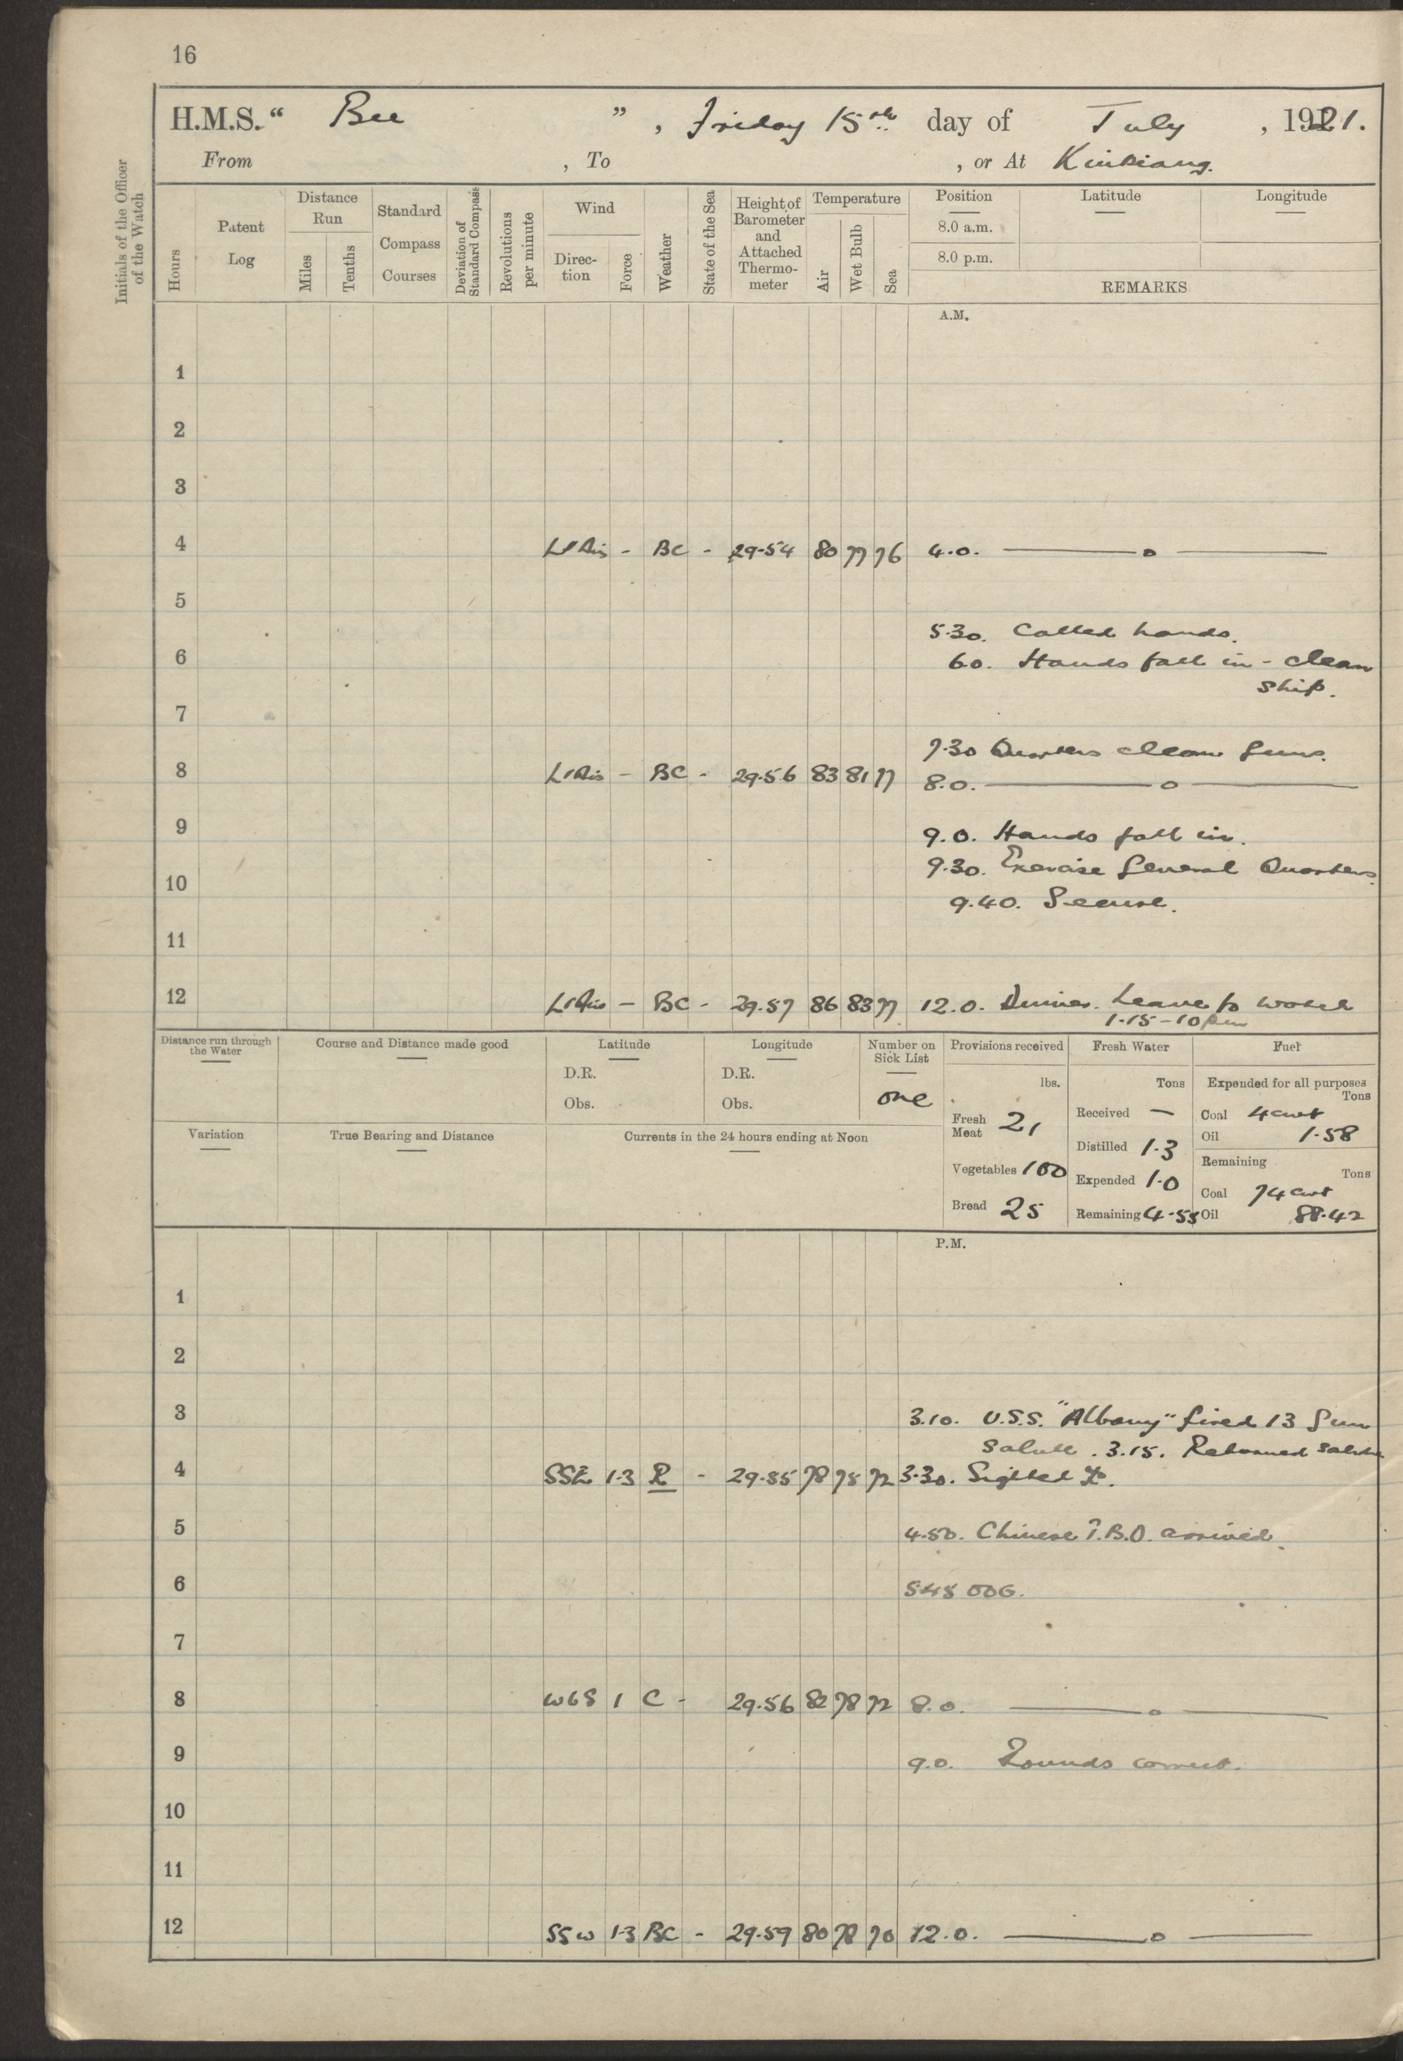 16
H.M.S. “ Bee ” , Friday 15th day of July , 1921.
From , To , or At Kiukiang.
Initials of the Officer of the Watch
Hours
Patent Log
Distance Run
Miles
Tenths
Standard Compass Courses
Deviation of Standard Compass
Revolutions per minute
Wind
Direc- tion
Force
Weather
State of the Sea
Height of Barometer and Attached Thermo- meter
Temperature
Air
Wet Bulb
Sea
Position
8.0 a.m.
8.0 p.m.
Latitude
Longitude
REMARKS
A.M.
1
2
3
4 Lt Airs - BC - 29.54 80 77 76 4.0. —o—
5
5.30. Called hands.
6 6.0. Hands fall in - clean
ship.
7
7.30 Quarters clean guns.
8 Lt Airs - BC - 29.56 83 81 77 8.0. —o—
9 9.0. Hands fall in.
9.30. Exercise General Quarters.
10
9.40. Secure.
11
12 Lt Airs - BC - 29.57 86 83 77 12.0. Dinner. Leave to watch
1.15 - 10 pm
Distance run through the Water
Course and Distance made good
Latitude
D.R.
Obs.
Longitude
D.R.
Obs.
Number on Sick List
one
Variation
True Bearing and Distance
Currents in the 24 hours ending at Noon
Provisions received
lbs.
Fresh Meat 21
Vegetables 100
Bread 25
Fresh Water
Tons
Received —
Distilled 1.3
Expended 1.0
Remaining 4.55
Fuel
Expended for all purposes
Tons
Coal 4 cwt
Oil 1.58
Remaining
Tons
Coal 74 cwt
Oil 88.42
P.M.
1
2
3 3.10. U.S.S. "Albany" fired 13 Gun
Salute. 3.15. Returned Salute
4 SSE 1-3 R - 29.55 78 75 72 3.30. Sighted
4.50. Chinese T.B.D. arrived.
5
6 5.45 OOG.
7
8 WbS 1 C - 29.56 82 78 72 8.0. —o—
9 9.0. Rounds correct.
10
11
12 SSW 1-3 BC - 29.59 80 78 70 12.0. —o—